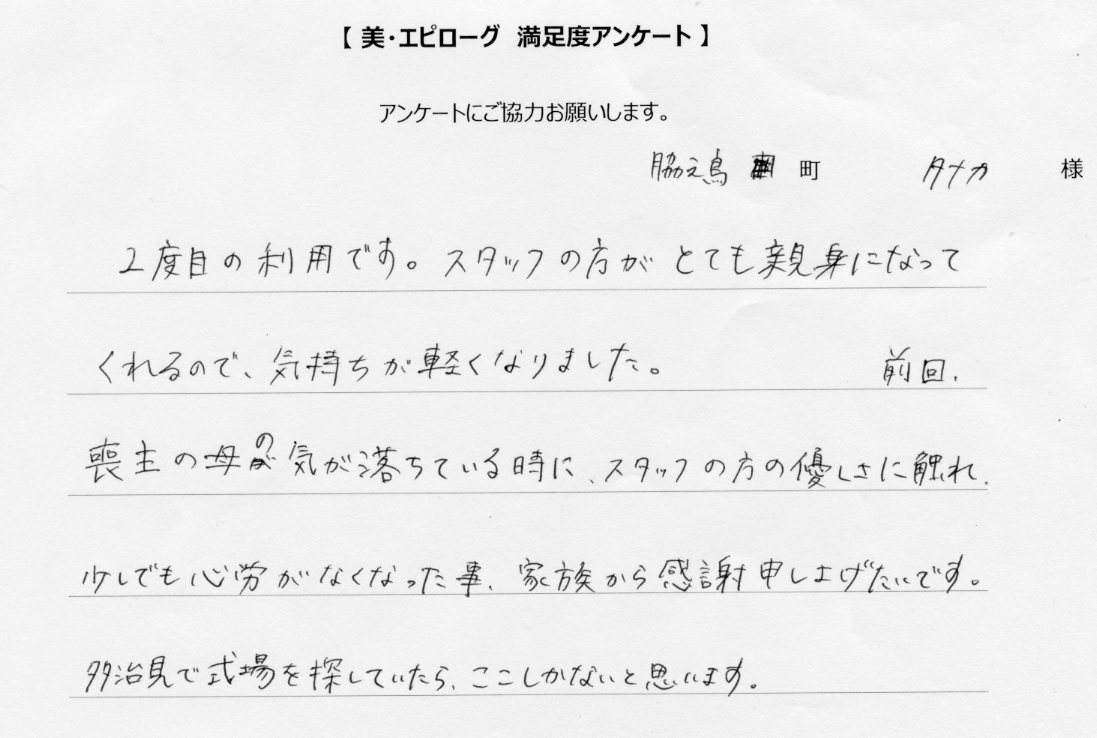 【 美・エピローグ 満足度アンケート 】
アンケートにご協力お願いします。
脇之島 町 タナカ 様
2度目の利用です。スタッフの方がとても親身になって
くれるので、気持ちが軽くなりました。 前回、
喪主の母の気が落ちている時に、スタッフの方の優しさに触れ、
少しでも心労がなくなった事、家族から感謝申し上げたいです。
多治見で式場を探していたら、ここしかないと思います。